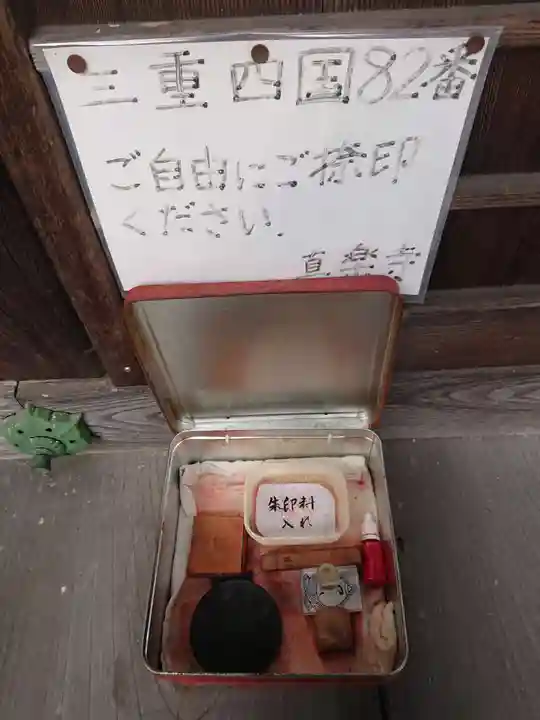 三重四国82番
ご自由にご捺印
ください.
真楽寺
朱印料
入れ